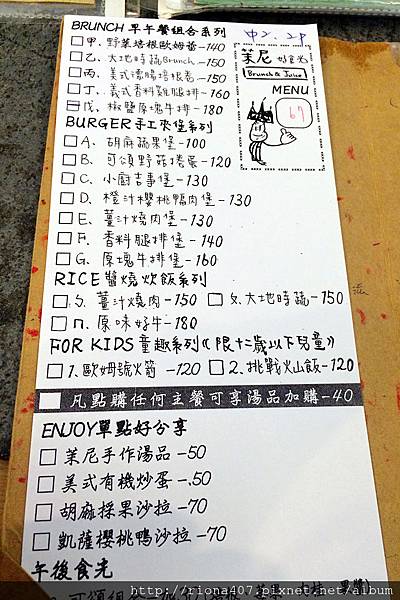 BRUNCH 早午餐組合系列
甲、野菜培根歐姆蕾-140
乙、大地時蔬Brunch-150
丙、美式德腸培根卷-150
丁、義式香料雞腿排-160
戊、椒鹽原塊牛排-180
茉尼 好食光
Brunch & Juice
MENU
67
BURGER手工夾堡系列
A、胡麻蔬果堡-100
B、可頌野菇捲蛋-120
C、小廚吉事堡-130
D、橙汁櫻桃鴨肉堡-130
E、薑汁燒肉堡-130
F、香料腿排堡-140
G、原塊牛排堡-160
RICE醬燒炊飯系列
ㄅ、薑汁燒肉-150 ㄆ、大地時蔬-150
ㄇ、原味好牛-180
FOR KIDS 童趣系列《限十二歲以下兒童》
1、歐姆號火箭 -120 2、挑戰火山飯-120
凡點購任何主餐可享湯品加購-40
ENJOY單點好分享
茉尼手作湯品-50
美式有機炒蛋-.50
胡麻採果沙拉-70
凱薩櫻桃鴨沙拉-70
午後食光
http://riona407.pixnet.net/album